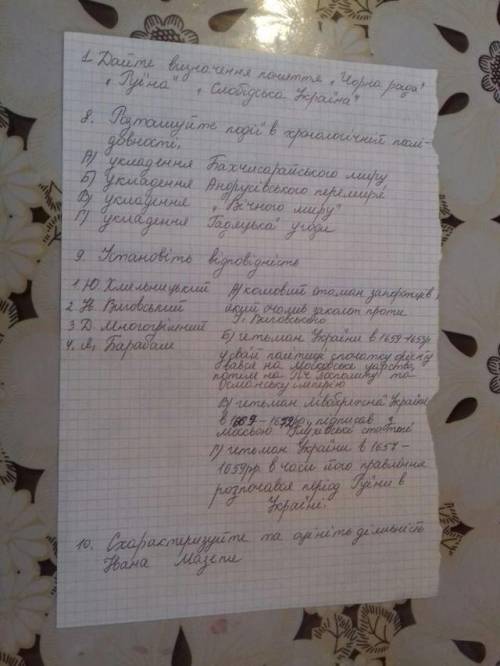 1. Дайте визначення поняття „Чорна рада"
„Руїна" „Слобідська Україна"
8. Розташуйте події в хронологічній послі-
довності.
А) укладення Бахчисарайського миру
Б) укладення Андрусівського перемир'я
В) укладення „Вічного миру"
Г) укладення „Гадяцька" угоди
9. Установіть відповідність
1. Ю. Хмельницький
2 І. Виговський
3 Д. Многогрішний
4. Я. Барабаш
А) кошовий отаман запорожців,
який очолив заколот проти
І. Виговського
Б) гетьман України в 1659-1663рр
у своїй політиці спочатку орієнту
вався на Московське царство,
потім на Річ Посполиту та
Османську імперію
В) гетьман Лівобережної України
в 1669-1672рр, підписав з
Москвою Глухівські статті
Г) гетьман України в 1657-
1659рр. в часи його правління
розпочався період Руїни в
Україні.
10. Схарактеризуйте та оцініть діяльність
Івана Мазепи